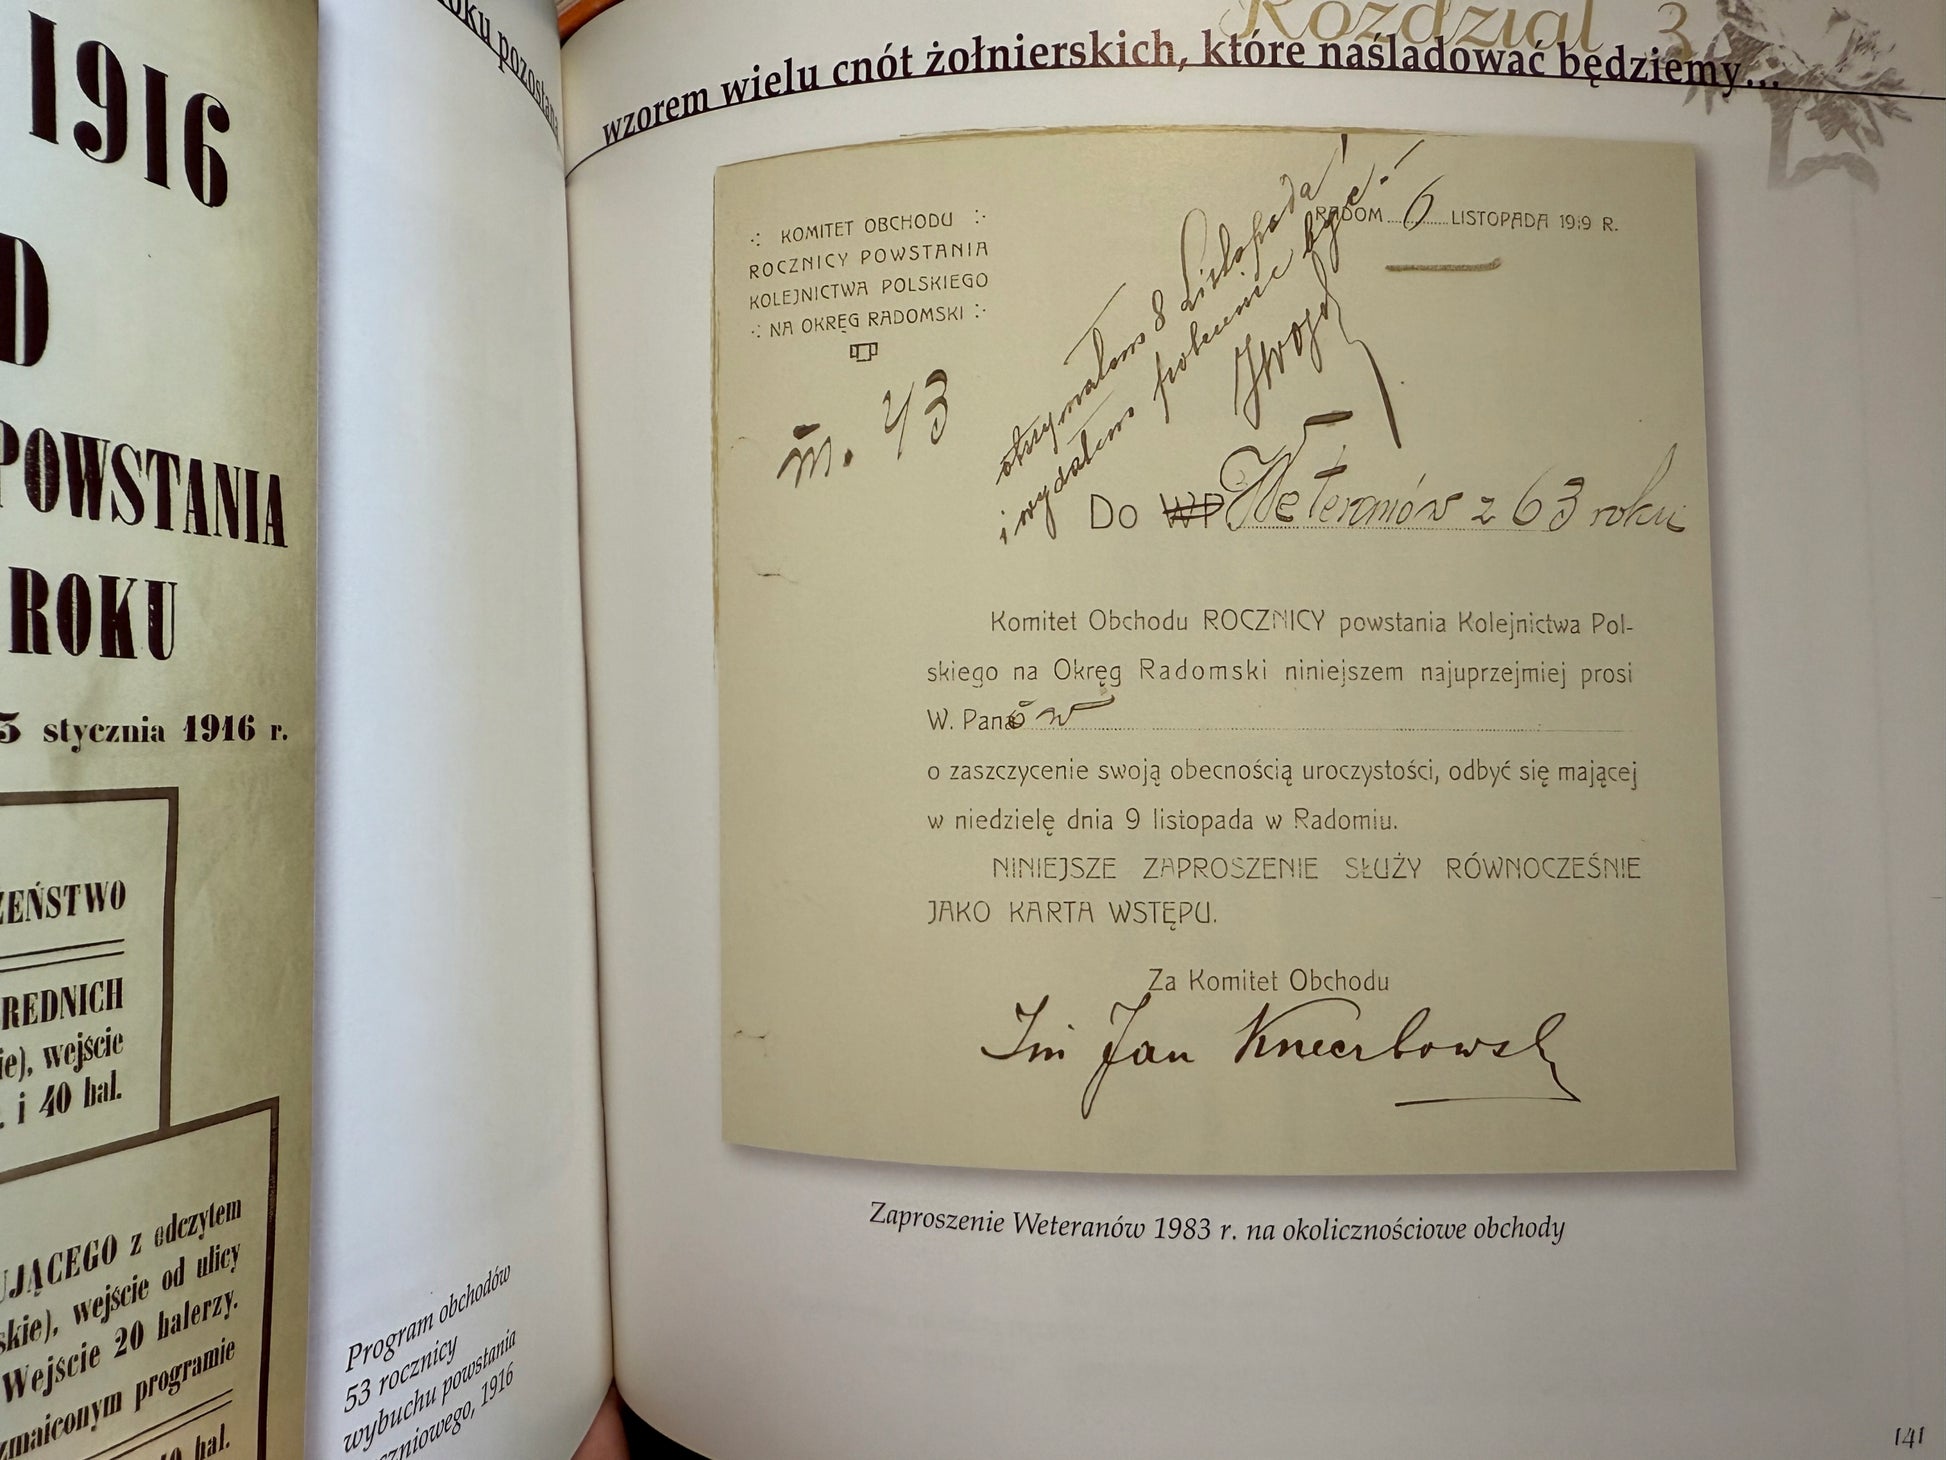 1916
D
POWSTANIA
ROKU
5 stycznia 1916 r.
ŻEŃSTWO
REDNICH
ie), wejście
i 40 hal.
UJĄCEGO z odczytem
skie), wejście od ulicy
Wejście 20 halerzy.
zmaiconym programie
hal.
oku pozostaną
Program obchodów
53 rocznicy
wybuchu powstania
czniowego, 1916
Rozdział 3
wzorem wielu cnót żołnierskich, które naśladować będziemy...
KOMITET OBCHODU
ROCZNICY POWSTANIA
KOLEJNICTWA POLSKIEGO
NA OKRĘG RADOMSKI
RADOM 6 LISTOPADA 1919 R.
otrzymałem 8 Listopada!
i wydałem polecenie
43
Do WP Weteranów z 63 roku
Komitet Obchodu ROCZNICY powstania Kolejnictwa Pol-
skiego na Okręg Radomski niniejszem najuprzejmiej prosi
W. Panów
o zaszczycenie swoją obecnością uroczystości, odbyć się mającej
w niedzielę dnia 9 listopada w Radomiu.
NINIEJSZE ZAPROSZENIE SŁUŻY RÓWNOCZEŚNIE
JAKO KARTA WSTĘPU.
Za Komitet Obchodu
Jan
Zaproszenie Weteranów 1983 r. na okolicznościowe obchody
141